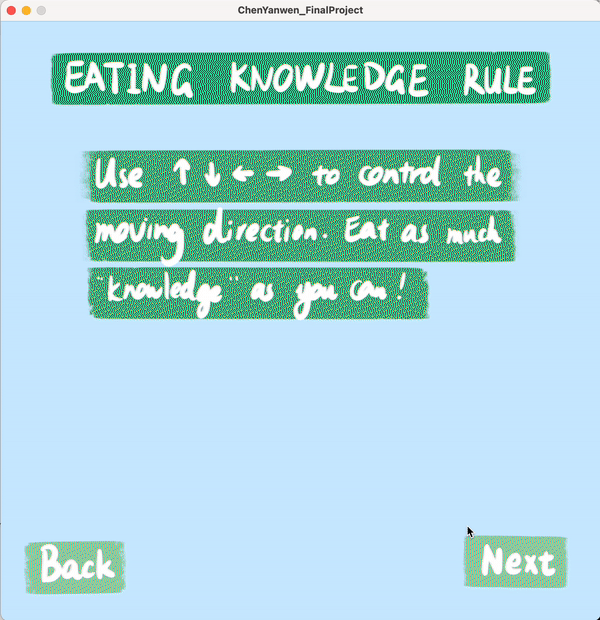 ChenYanwen_FinalProject
EATING KNOWLEDGE RULE
Use ↑ ↓ ← → to control the
moving direction. Eat as much
"knowledge" as you can!
Back
Next